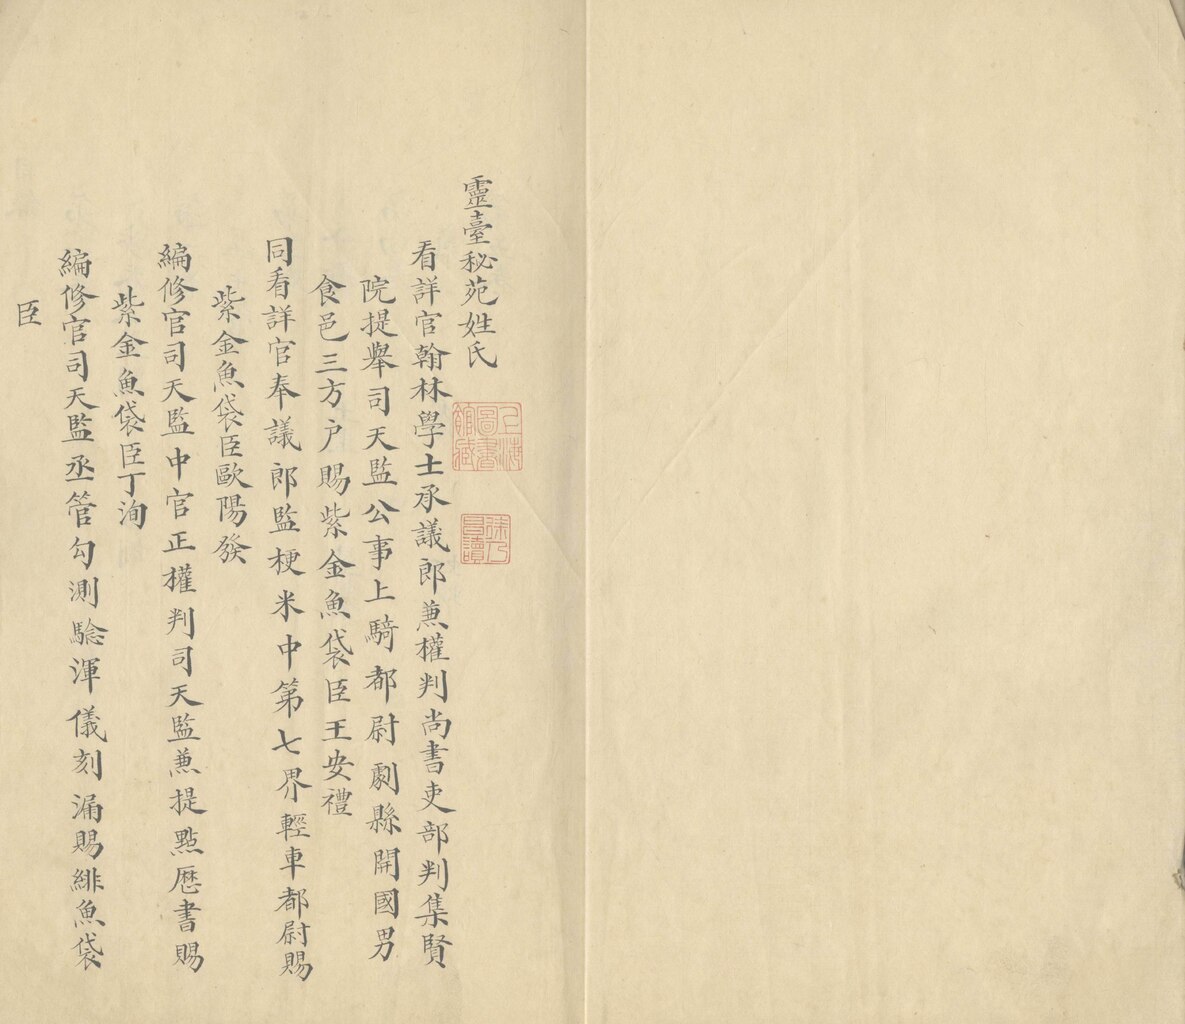 靈臺秘苑姓氏
看詳官翰林學士承議郎兼權判尚書吏部判集賢
院提舉司天監公事上騎都尉劇縣開國男
食邑三方户賜紫金魚袋臣王安禮
同看詳官奉議郎監梗米中第七界輕車都尉賜
紫金魚袋臣歐陽發
編修官司天監中官正權判司天監兼提點歷書賜
紫金魚袋臣丁洵
編修官司天監丞管勾測驗渾儀刻漏賜緋魚袋
臣
上海圖書館藏
徐乃昌讀